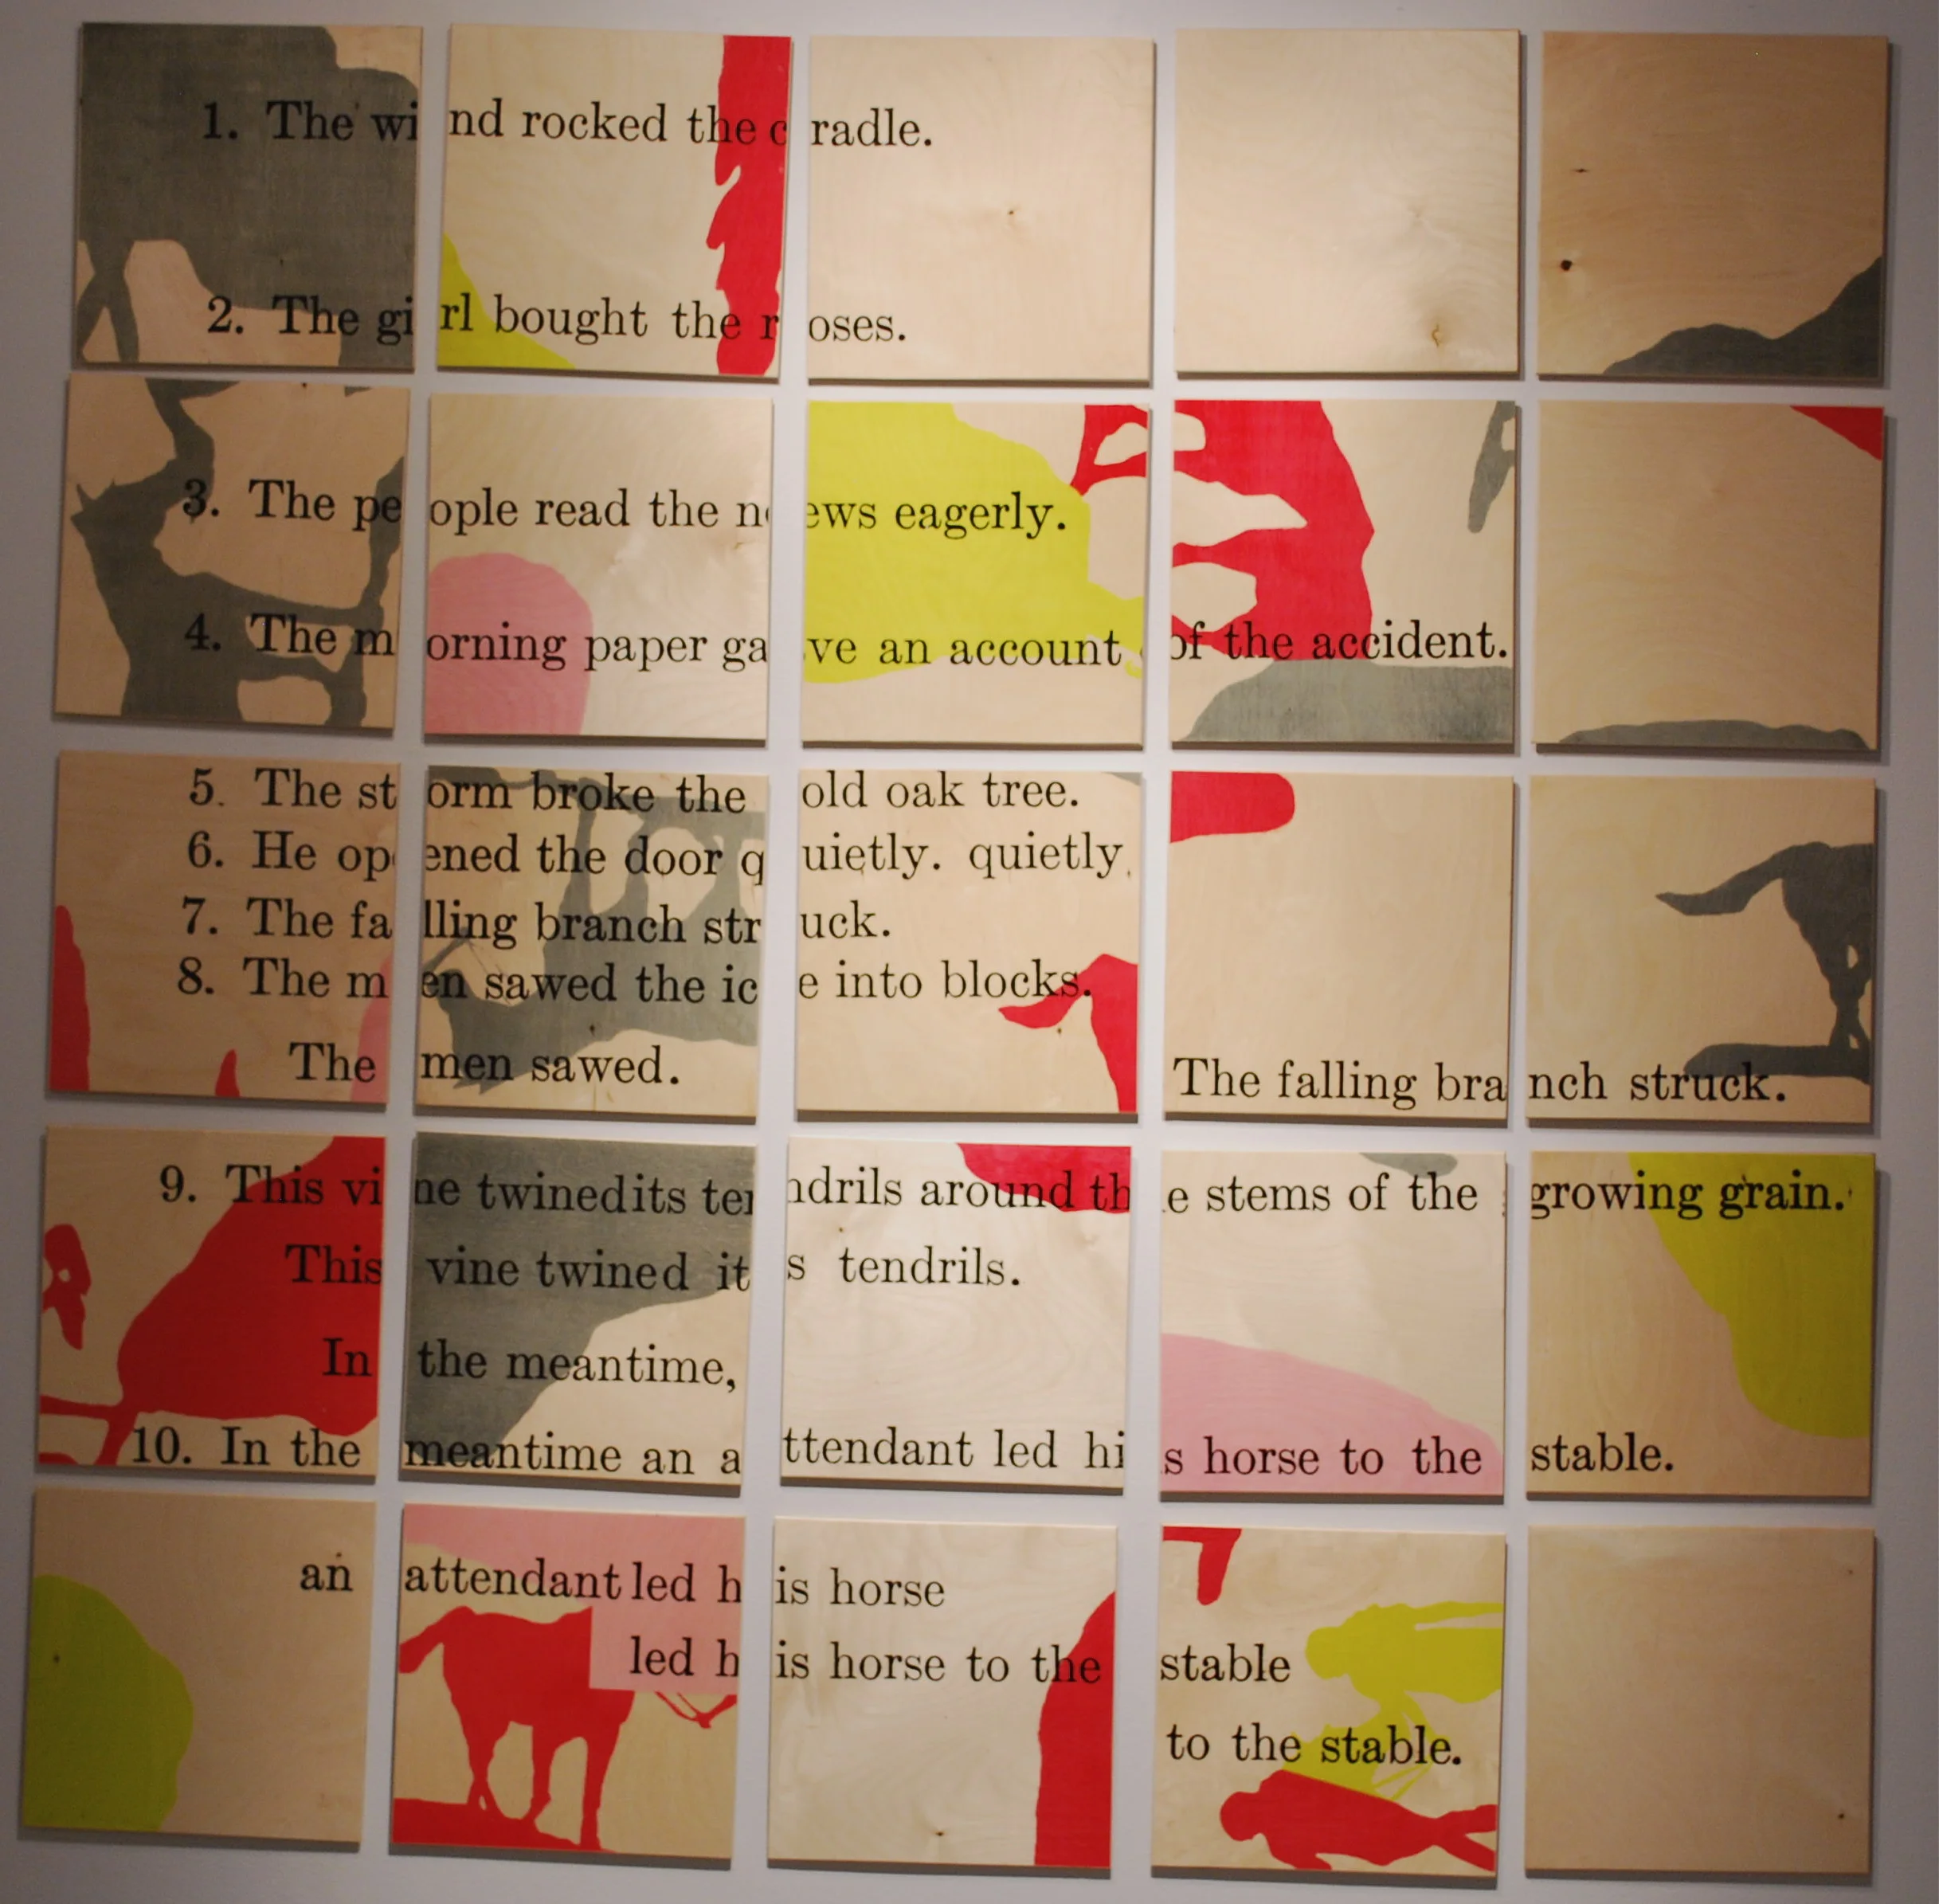 1. The wind rocked the cradle.
2. The girl bought the roses.
3. The people read the news eagerly.
4. The morning paper gave an account of the accident.
5. The storm broke the old oak tree.
6. He opened the door quietly. quietly
7. The falling branch struck.
8. The men sawed the ice into blocks.
The men sawed. The falling branch struck.
9. This vine twinedits tendrils around the stems of the growing grain.
This vine twined its tendrils.
In the meantime,
10. In the meantime an attendant led his horse to the stable.
an attendant led his horse
led his horse to the stable
to the stable.